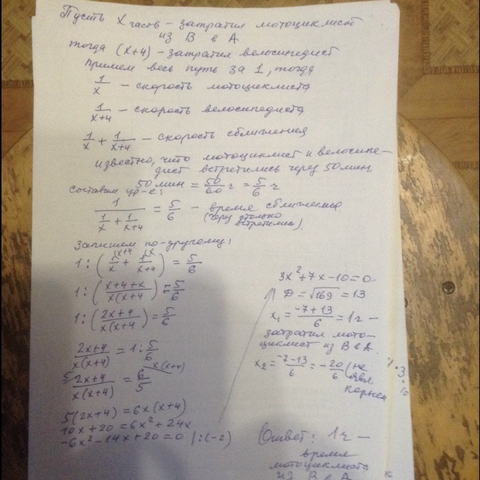 Пусть x часов - затратил мотоциклист
из B в A
тогда (x+4) - затратил велосипедист
Примем весь путь за 1, тогда
1/x - скорость мотоциклиста
1/(x+4) - скорость велосипедиста
1/x + 1/(x+4) - скорость сближения
известно, что мотоциклист и велосипе-
дист встретились через 50 мин
50 мин = 50/60 г = 5/6 г
Составим ур-е:
1/(1/x + 1/(x+4)) = 5/6 - время сближения
(через столько встретились)
Запишем по-другому:
1 : (1/x + 1/(x+4)) = 5/6
1 : ((x+4+x)/(x(x+4))) = 5/6
1 : ((2x+4)/(x(x+4))) = 5/6
(2x+4)/(x(x+4)) = 1 : 5/6
(2x+4)/(x(x+4)) = 6/5
5(2x+4) = 6x(x+4)
10x+20 = 6x²+24x
-6x²-14x+20=0 |:(-2)
3x²+7x-10=0
D = √169 = 13
x₁ = (-7+13)/6 = 1г -
затратил мото-
циклист из B в A
x₂ = (-7-13)/6 = -20/6 (не
явл
корнем
Ответ: 1г -
время
мотоциклиста
из B в A